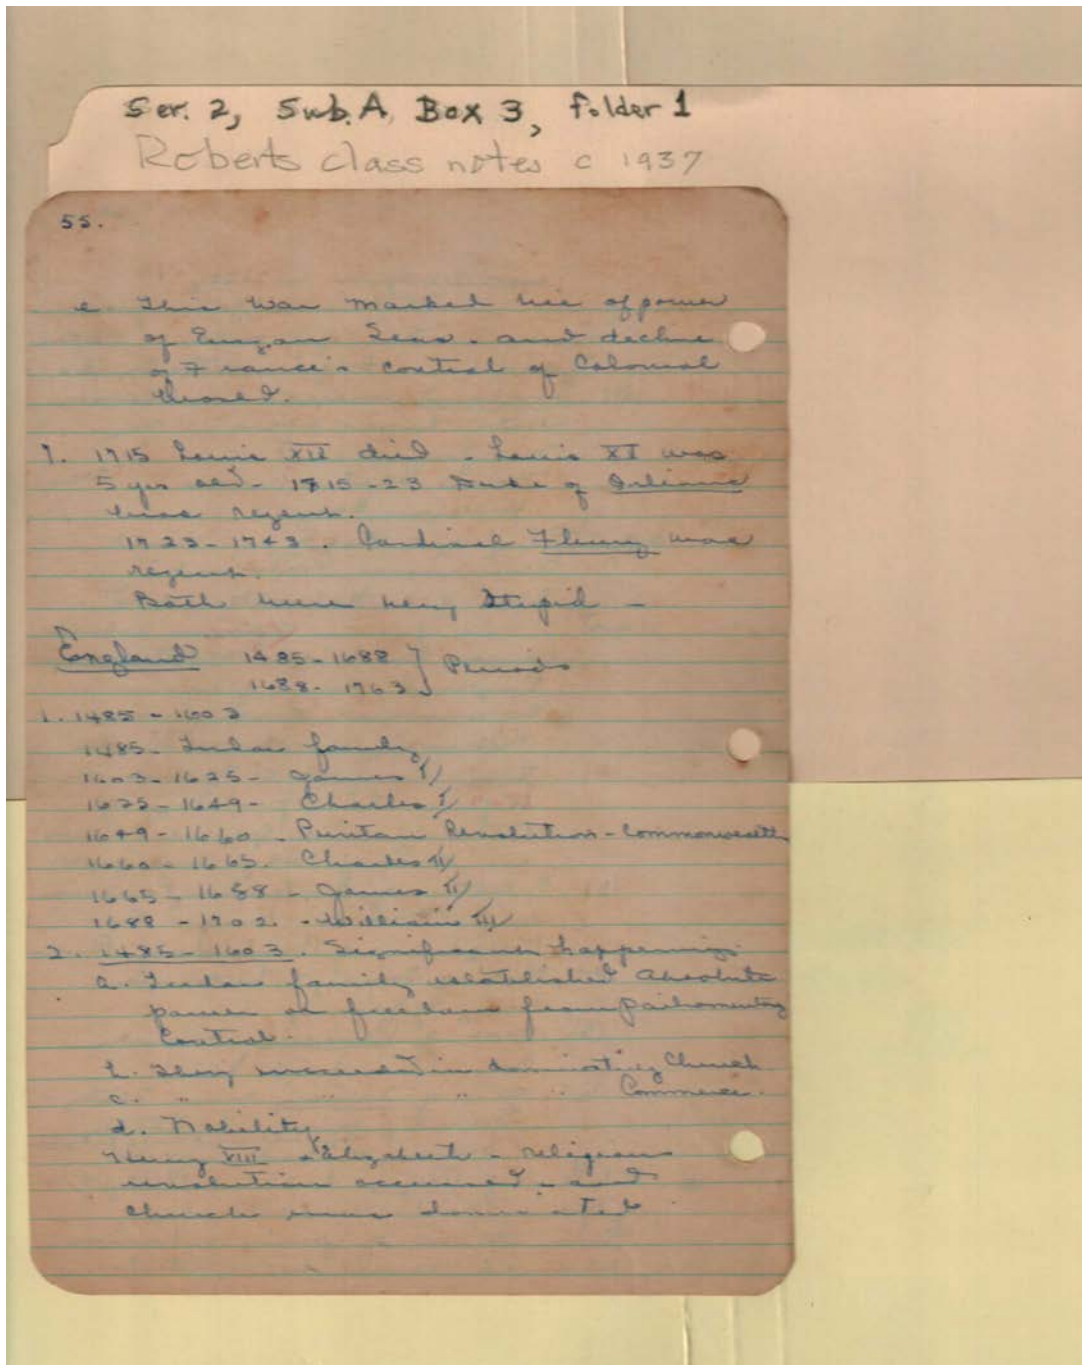 Ser. 2, Sub. A, Box 3, folder 1
Roberts class notes c 1937
55.
e. This War marked rise of power
of Seas. and decline
of France's control of Colonial
7. 1715 Louis XIV died - Louis XV was
5 yrs old - 1715-23 Duke of Orleans
was regent.
1723-1743. Cardinal Fleury was
regent.
Both were very Stupid -
England 1485-1688 } Periods
1688-1763
1. 1485-1603
1485- Tudor family
1603-1625- James I
1625-1649- Charles I
1649-1660 - Puritan Revolution - Commonwealth
1660-1665. Charles II
1665-1688 - James II
1688-1702. - William III
2. 1485-1603. Significant happenings.
a. Tudor family established Absolute
power or freedom from Parliamentary
Control.
b. They succeeded in dominating Church
c. " " " " Commerce.
d. Nobility
Henry VIII & Elizabeth - religious
revolution occurred - and
Church was dominated